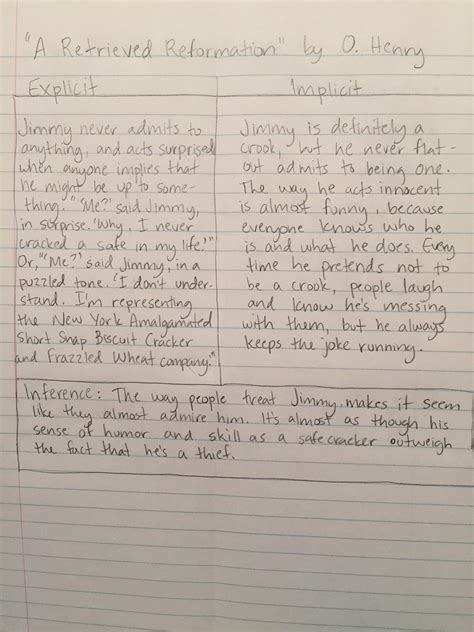 "A Retrieved Reformation" by O. Henry
Explicit
Jimmy never admits to
anything, and acts surprised
when anyone implies that
he might be up to some-
thing. "'Me?' said Jimmy,
in surprise. 'Why, I never
cracked a safe in my life.'"
Or, "'Me?' said Jimmy, in a
puzzled tone. 'I don't under-
stand. I'm representing
the New York Amalgamated
Short Snap Biscuit Cracker
and Frazzled Wheat company.'"
Implicit
Jimmy is definitely a
crook, but he never flat-
out admits to being one.
The way he acts innocent
is almost funny, because
everyone knows who he
is and what he does. Every
time he pretends not to
be a crook, people laugh
and know he's messing
with them, but he always
keeps the joke running.
Inference: The way people treat Jimmy makes it seem
like they almost admire him. It's almost as though his
sense of humor and skill as a safecracker outweigh
the fact that he's a thief.